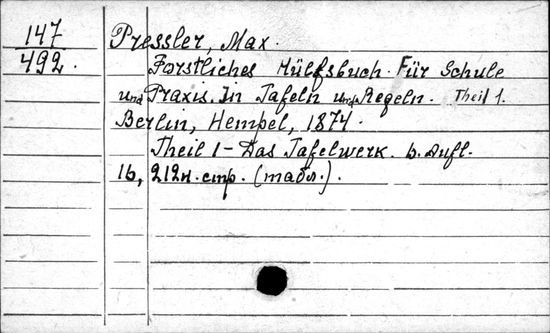 147
492.
Pressler, Max.
Forstliches Hülfsbuch. Für Schule
und Praxis. In Tafeln und Regeln. Theil 1.
Berlin, Hempel, 1874.
Theil 1 - Das Tafelwerk. 6. Aufl.
16, 212 н. стр. (табл.).